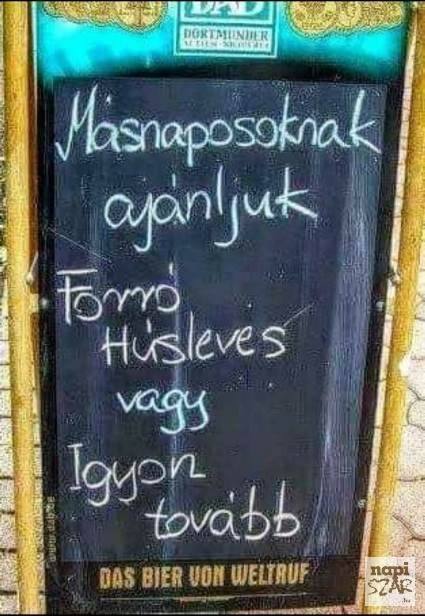 DAB
DORTMUNDER
ACTIEN-BRAUEREI
Másnaposoknak
ajánljuk
Forró
Húsleves
vagy
Igyon
tovább
DAS BIER VON WELTRUF
napi
SZAR
.hu